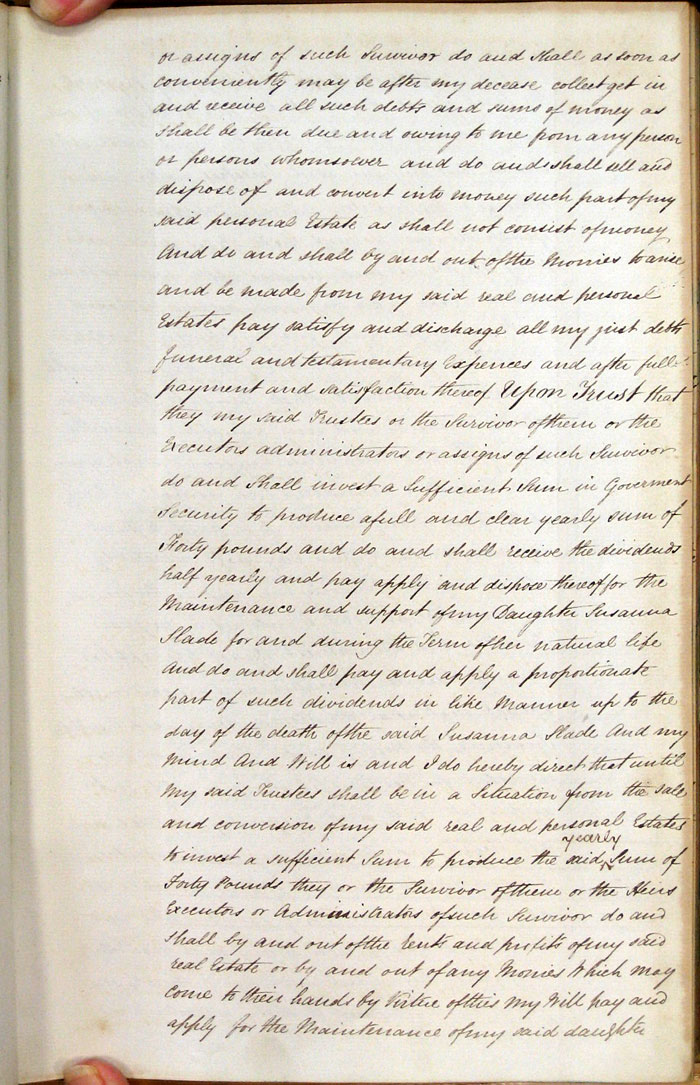 or assigns of such Survivor do and shall as soon as
conveniently may be after my decease collect get in
and receive all such debts and sums of money as
shall be then due and owing to me from any person
or persons whomsoever and do and shall sell and
dispose of and convert into money such part of my
said personal Estate as shall not consist of money
And do and shall by and out of the Monies to arise
and be made from my said real and personal
Estates pay satisfy and discharge all my just debts
funeral and testamentary Expences and after full
payment and satisfaction thereof Upon Trust that
they my said Trustees or the Survivor of them or the
Executors administrators or assigns of such Survivor
do and shall invest a Sufficient Sum in Goverment
Security to produce a full and clear yearly sum of
Forty pounds and do and shall receive the dividends
half yearly and pay apply and dispose thereof for the
Maintenance and support of my Daughter Susanna
Slade for and during the Term of her natural life
And do and shall pay and apply a proportionate
part of such dividends in like Manner up to the
day of the death of the said Susanna Slade And my
Mind And Will is and I do hereby direct that until
My said Trustees shall be in a Situation from the sale
and conversion of my said real and personal Estates
to invest a sufficient Sum to produce the said yearly Sum of
Forty Pounds they or the Survivor of them or the Heirs
Executors or Administrators of such Survivor do and
shall by and out of the rents and profits of my said
real Estate or by and out of any Monies Which may
come to their hands by Virtue of this my Will pay and
apply for the Maintenance of my said daughter